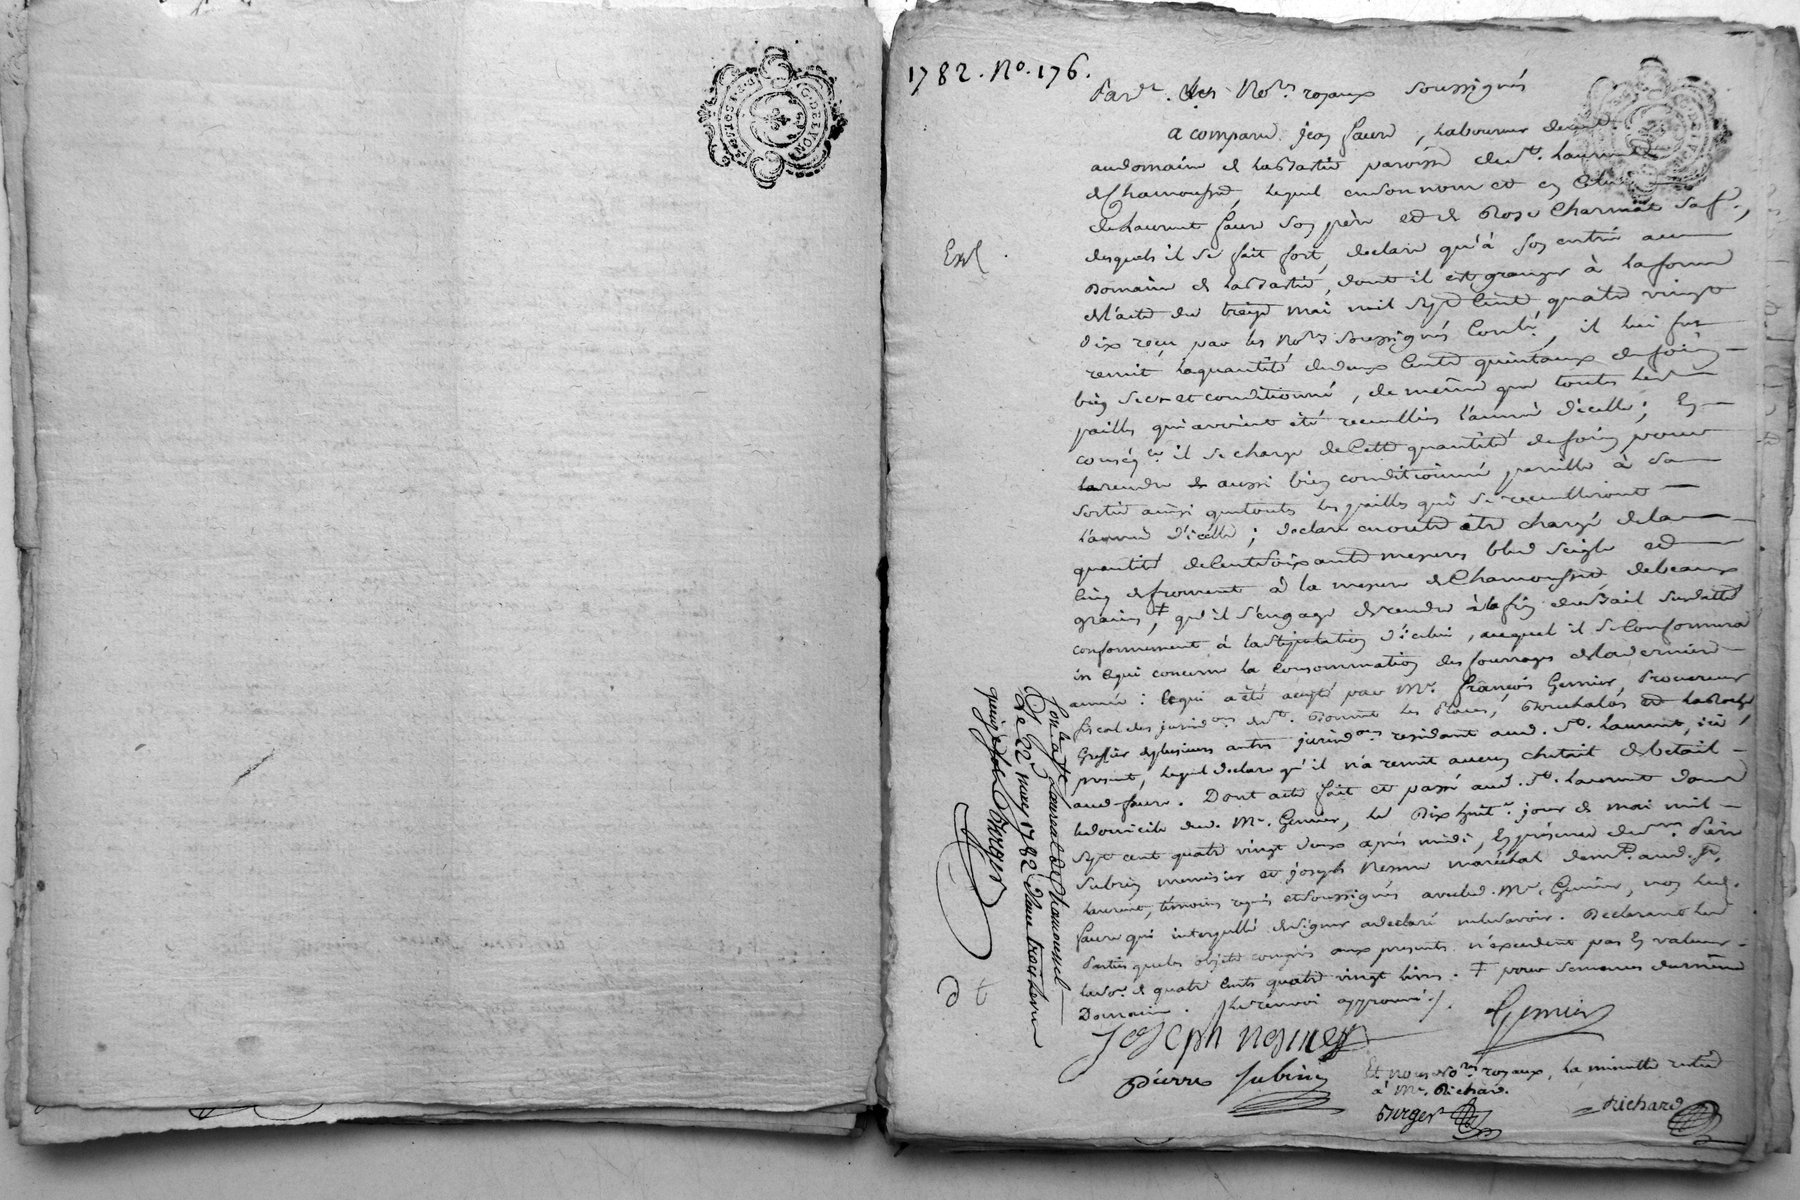 G. DE LYON
1782. No. 176.
Pard.t les No.res royaux soussignés
a comparu jean faure, laboureur dem.t
audomaine de labbatie paroisse de St. Laurent
de Chamousset, lequel en son nom et en celui
de Laurent faure son père et de Rose Charmat sa f.,
desquels il se fait fort, declare qu'à son entrée au
Domaine de labbatie, dont il est granger à la forme
de l'acte du treize mai mil sept cent quatre vingt
dix reçu par les No.res soussignés Contlé, il lui fut
remit la quantité de deux cents quintaux de foin
bien sec et conditionné, de même que toutes les
pailles qui avoient été recueillies l'année d'icelle; En
conséq.ce il se charge de cette quantité de foin pour
la rendre de aussi bien conditionné pareille à sa
sortie ainsi que toutes les pailles qui se recuilliront
l'année d'icelle; declare en outre etre chargé de la
quantité de cent soixante mesures bled seigle et
cinq de froment à la mesure de Chamousset de beaux
grains, ‡ qu'il s'engage de rendre à la fin du bail susdatté
conformement à la stipulation d'icelui, auquel il se conformera
en ce qui concerne la consommation des fourrages de la derniere
année: ce qui a été accepté par Mr. françois Gemier, Procureur
fiscal des jurid.ons de St. Bonnet les Places,
Greffier de plusieurs autres jurid.ons residant aud. St. Laurent, ici
present, lequel declare qu'il n'a remit aucun chetait de betail
aud. faure. Dont acte fait et passé aud. St. Laurent dans
le domicile dud. Mr. Gemier, le Dix huit.e jour de mai mil
sept cent quatre vingt deux après midi, En présence de Pierre
Subrin menuisier et joseph Nesme maréchal dem.t aud. St.
Laurent, témoins requis et soussignés avec led. Mr. Gemier, non led.
faure qui interpellé de signer a declaré ne le savoir. Declarant les
Parties que les objets compris aux presents n'excedent pas En valeur
la so.e de quatre cents quatre vingt livres. ‡ pour semences du même
Domaine. / le renvoi approuvé. /.
Gemier
Joseph nesme
pierre subrin
Et nous No.res royaux, la minutte restée
à Me. Richard.
Burger
Richard
Con.le a St Laurent de Chamousset
Le 22 may 1782 Reçu trois livres
quinze sols Burger